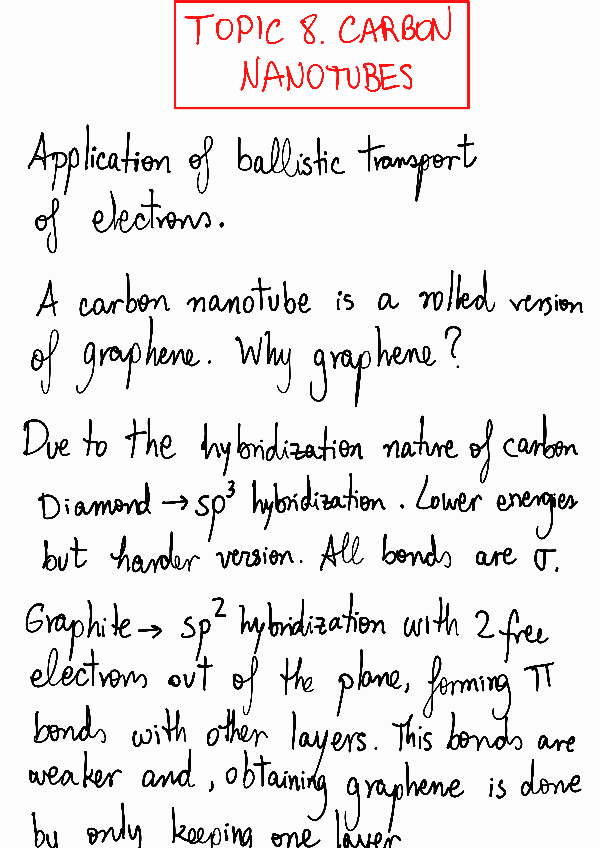 TOPIC 8. CARBON
NANOTUBES
Application of ballistic transport
of electrons.
A carbon nanotube is a rolled version
of graphene. Why graphene?
Due to the hybridization nature of carbon
Diamond → sp³ hybridization. Lower energies
but harder version. All bonds are σ.
Graphite → sp² hybridization with 2 free
electrons out of the plane, forming π
bonds with other layers. This bonds are
weaker and, obtaining graphene is done
by only keeping one layer